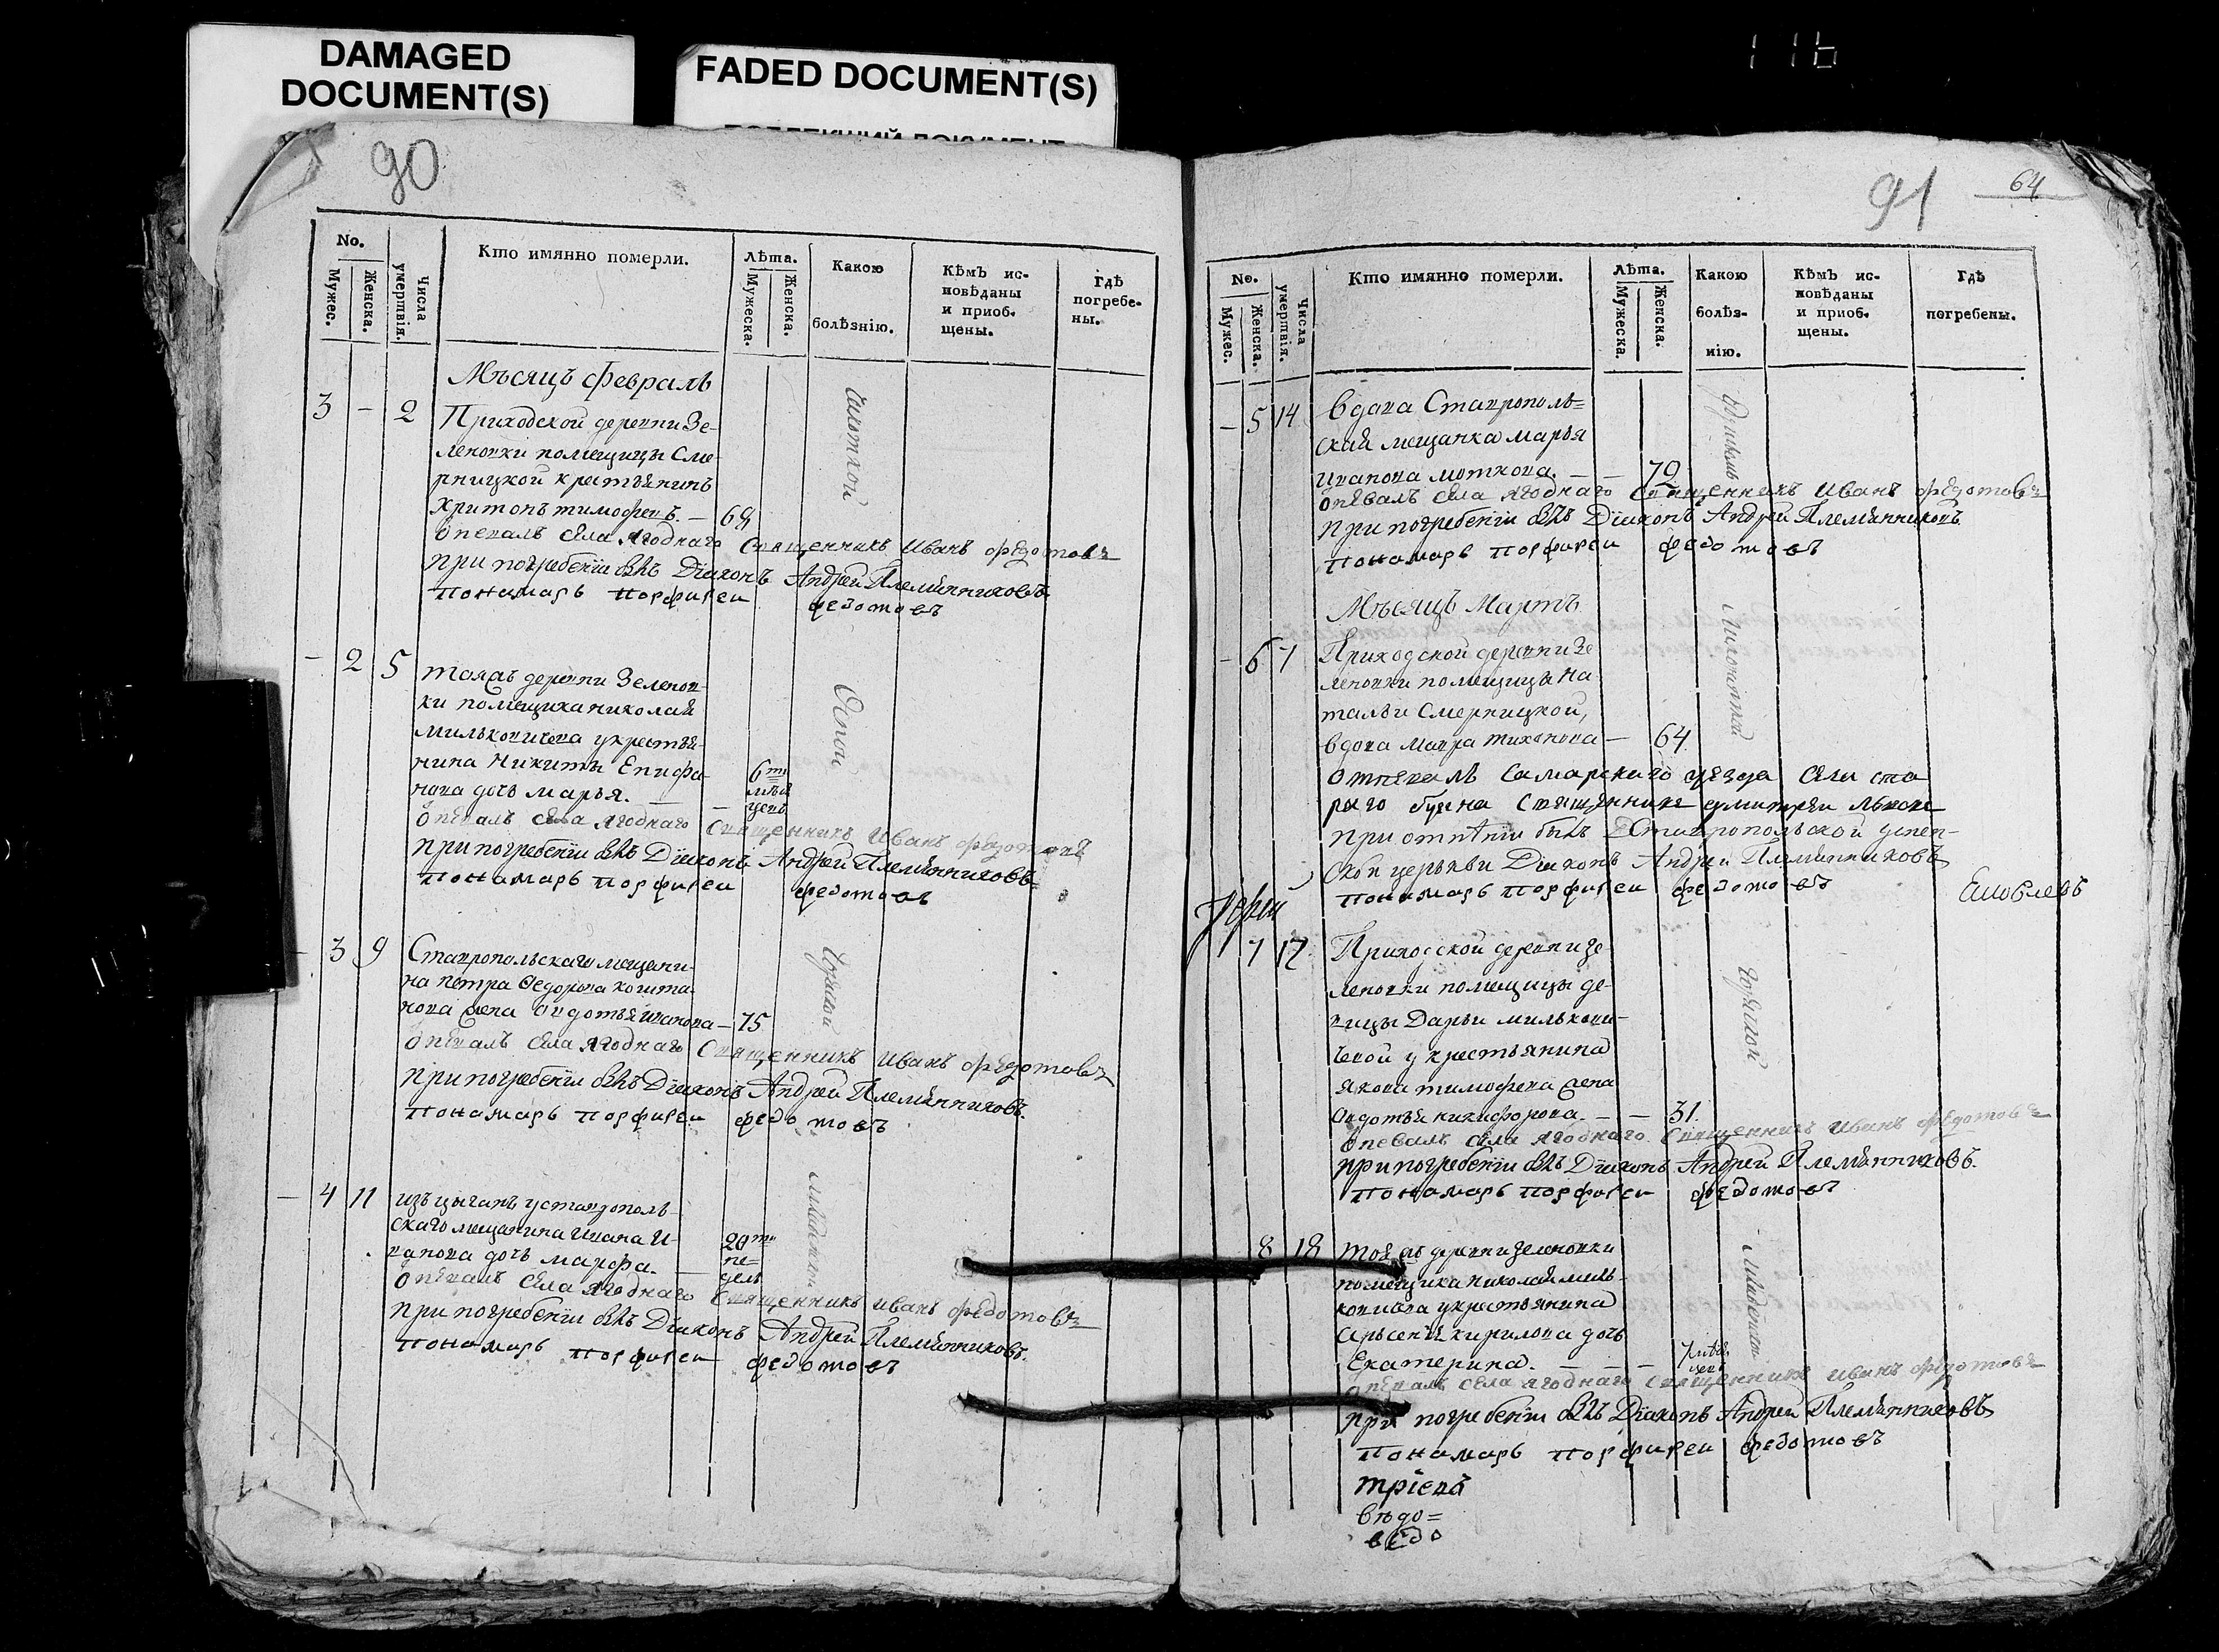 DAMAGED
DOCUMENT(S)
FADED DOCUMENT(S)
116
90
No.
Мужес.
Женска.
Числа умертвія.
Кто имянно померли.
Лѣта.
Мужеска.
Женска.
Какою
болѣзнію.
Кѣмъ ис-
повѣданы
и приоб-
щены.
гдѣ
погребе-
ны.
Мѣсяцъ февраль
3 - 2 Приходской деревни Зе-
леновки помещицы Сме-
рницкой крестьянинъ
Харитонъ тимофеевъ. — 68
чахоткой
Опевалъ села Ягоднаго Священникъ Иванъ Федотовъ
при погребенїи былъ Дїаконъ Андрей Племянниковъ
пономарь порфирей федотовъ
- 2 5 тояжъ деревни Зеленов-
ки помещика николая
милковичева у крестья-
нина Никиты Епифа-
нова дочь марья. — 6ти
месяцевъ
Оспой
Опевалъ села Ягоднаго Священникъ Иванъ Федотовъ
при погребенїи былъ Дїаконъ Андрей Племянниковъ
пономарь порфирей федотовъ
- 3 9 Ставропольскаго мещани-
на петра Федорова
жена авдотья иванова — 75
горячкой
Опевалъ села Ягоднаго Священникъ Иванъ Федотовъ
при погребенїи былъ Дїаконъ Андрей Племянниковъ
пономарь порфирей федотовъ
- 4 11 изъ цыганъ у ставрополь-
скаго мещанина Ивана И-
ванова дочь марфа. — 20ти
не-
дель
Опевалъ села Ягоднаго Священникъ Иванъ Федотовъ
при погребенїи былъ Дїаконъ Андрей Племянниковъ
пономарь порфирей федотовъ
91
64
No.
Мужес.
Женска.
Числа умертвія.
Кто имянно померли.
Лѣта.
Мужеска.
Женска.
Какою
болѣз-
нію.
Кѣмъ ис-
повѣданы
и приоб-
щены.
гдѣ
погребены.
- 5 14 вдова Ставрополь=
ская мещанка марья
иванова моткова. — 70
Опевалъ села Ягоднаго Священникъ Иванъ Федотовъ
при погребенїи былъ Дїаконъ Андрей Племянниковъ
пономарь порфирей федотовъ
Мѣсяцъ Мартъ
- 6 7 Приходской деревни Зе
леновки помещицы На
тальи Смерницкой,
вдова мавра тихонова — 64
Отпевалъ Самарскаго уезда села ста
раго буяна Священникъ димитрей
при отпѣтїи былъ Ставропольской успен-
ской церькви Дїаконъ Андрей Племянниковъ
пономарь порфирей федотовъ
7 12 Приходской деревни зе-
леновки помещицы де-
вицы Дарьи милькови-
чевой у крестьянина
якова тимофеева жена
авдотья никифорова. — 31.
горячкой
Опевалъ села Ягоднаго Священникъ Иванъ Федотовъ
при погребенїи былъ Дїаконъ Андрей Племянниковъ
пономарь порфирей федотовъ
8 18 тояжъ деревни зеленовки
помещика николая миль-
у крестьянина
арьсенья кирилова дочь
Екатерина. — 7
Опевалъ села Ягоднаго Священникъ Иванъ Федотовъ
при погребенїи былъ Дїаконъ Андрей Племянниковъ
пономарь порфирей федотовъ